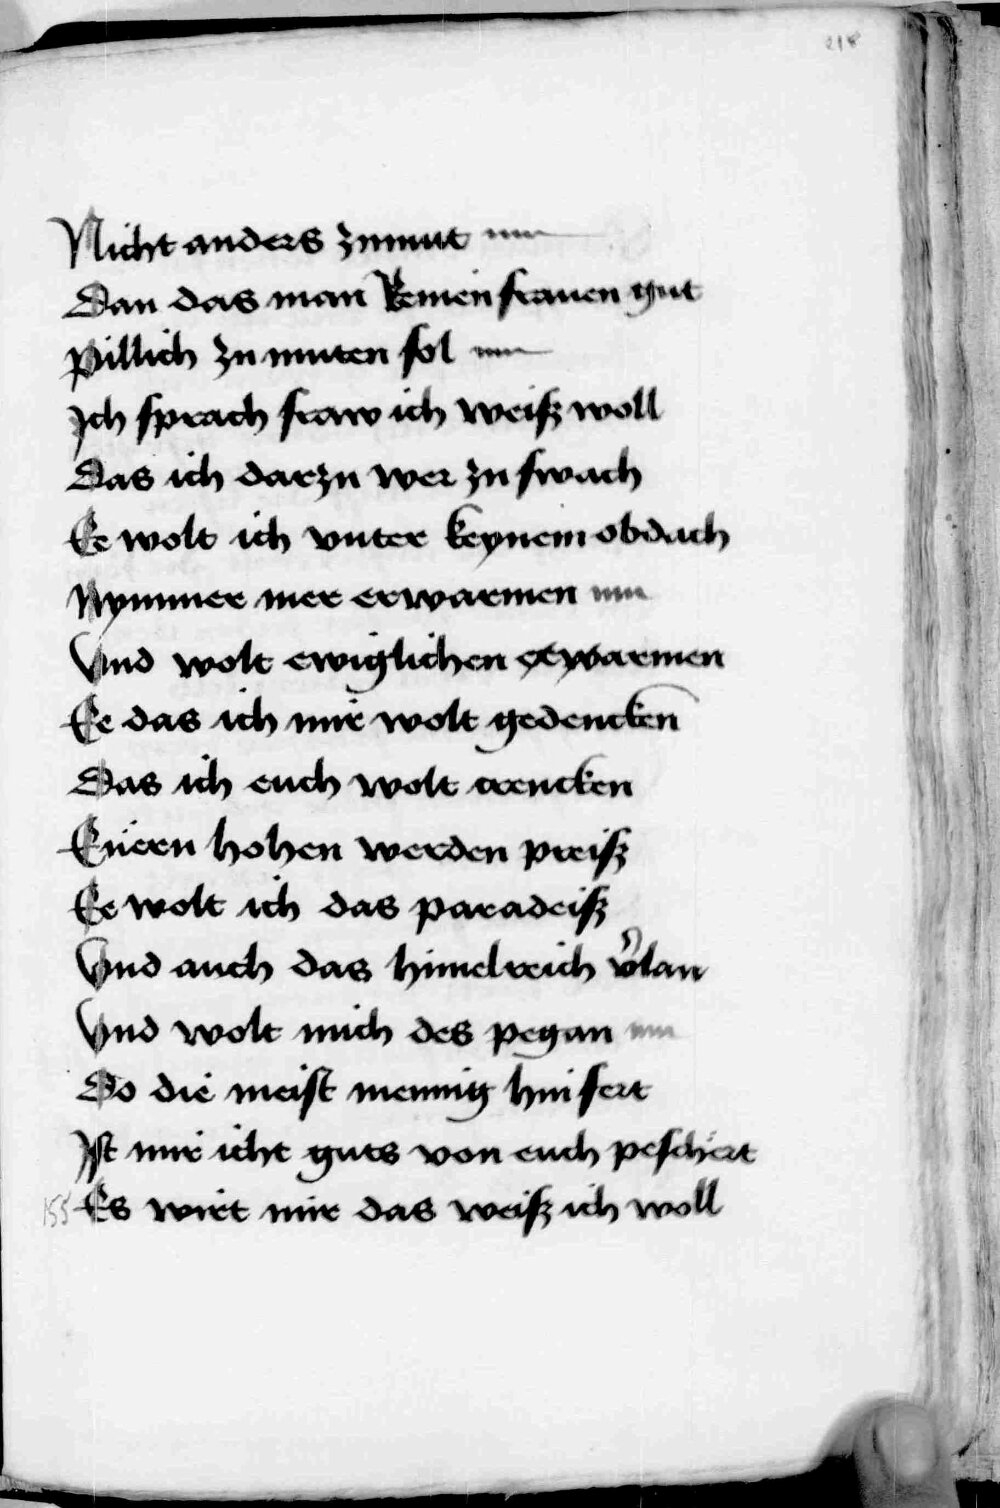 218
Nicht anders zumut
Dan das man Remen frauen gut
Pillich zu muten sol
Ich sprach fraw ich weiß woll
Das ich darzu wer zu swach
Ee wolt ich vnter keynem obdach
Nymmer mer erwarmen
Vnd wolt ewiglichen
Ee das ich mir wolt gedencken
Das ich euch wolt crencken
Euern hohen werden preiß
Ee wolt ich das paradeiß
Vnd auch das himelreich v̉lan
Vnd wolt mich des pegan
Do die meist mennig hin fert
Ist mir icht guts von euch peschert
155 Es wirt mir das weiß ich woll